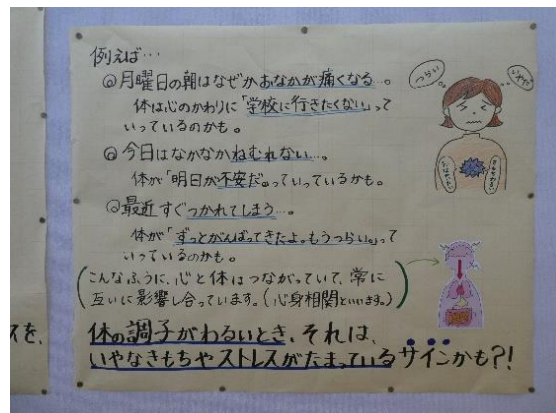 例えば…
◎月曜日の朝はなぜかおなかが痛くなる…。
体は心のかわりに「学校に行きたくない」って
いっているのかも。
◎今日はなかなかねむれない…。
体が「明日が不安だ。」っていっているかも。
◎最近すぐつかれてしまう…。
体が「ずっとがんばってきたよ。もうつらい。」って
いっているのかも。
(こんなふうに、心と体はつながっていて、常に
互いに影響し合っています。(心身相関といいます。))
体の調子がわるいとき、それは、
いやなきもちやストレスがたまっているサインかも?!
つらい
いやだ
スを、